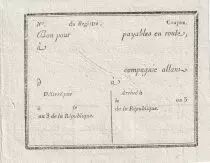 N°. du Registre, Coupon.
Bon pour payables en route,
à
compagnie allant
D à
Délivré par Arrivé à
le le an 3
an 3 de la République. de la République.